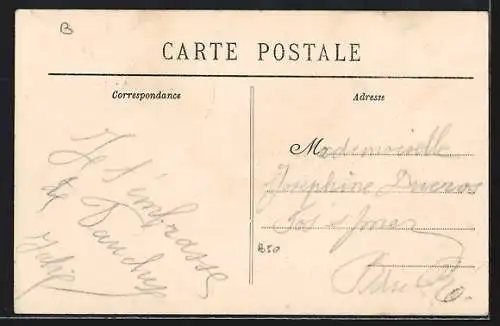 B
CARTE POSTALE
Correspondance
Adresse
Je t'embrasse
de
Mademoiselle
Joséphine Ducros
Fos s/mer
B50